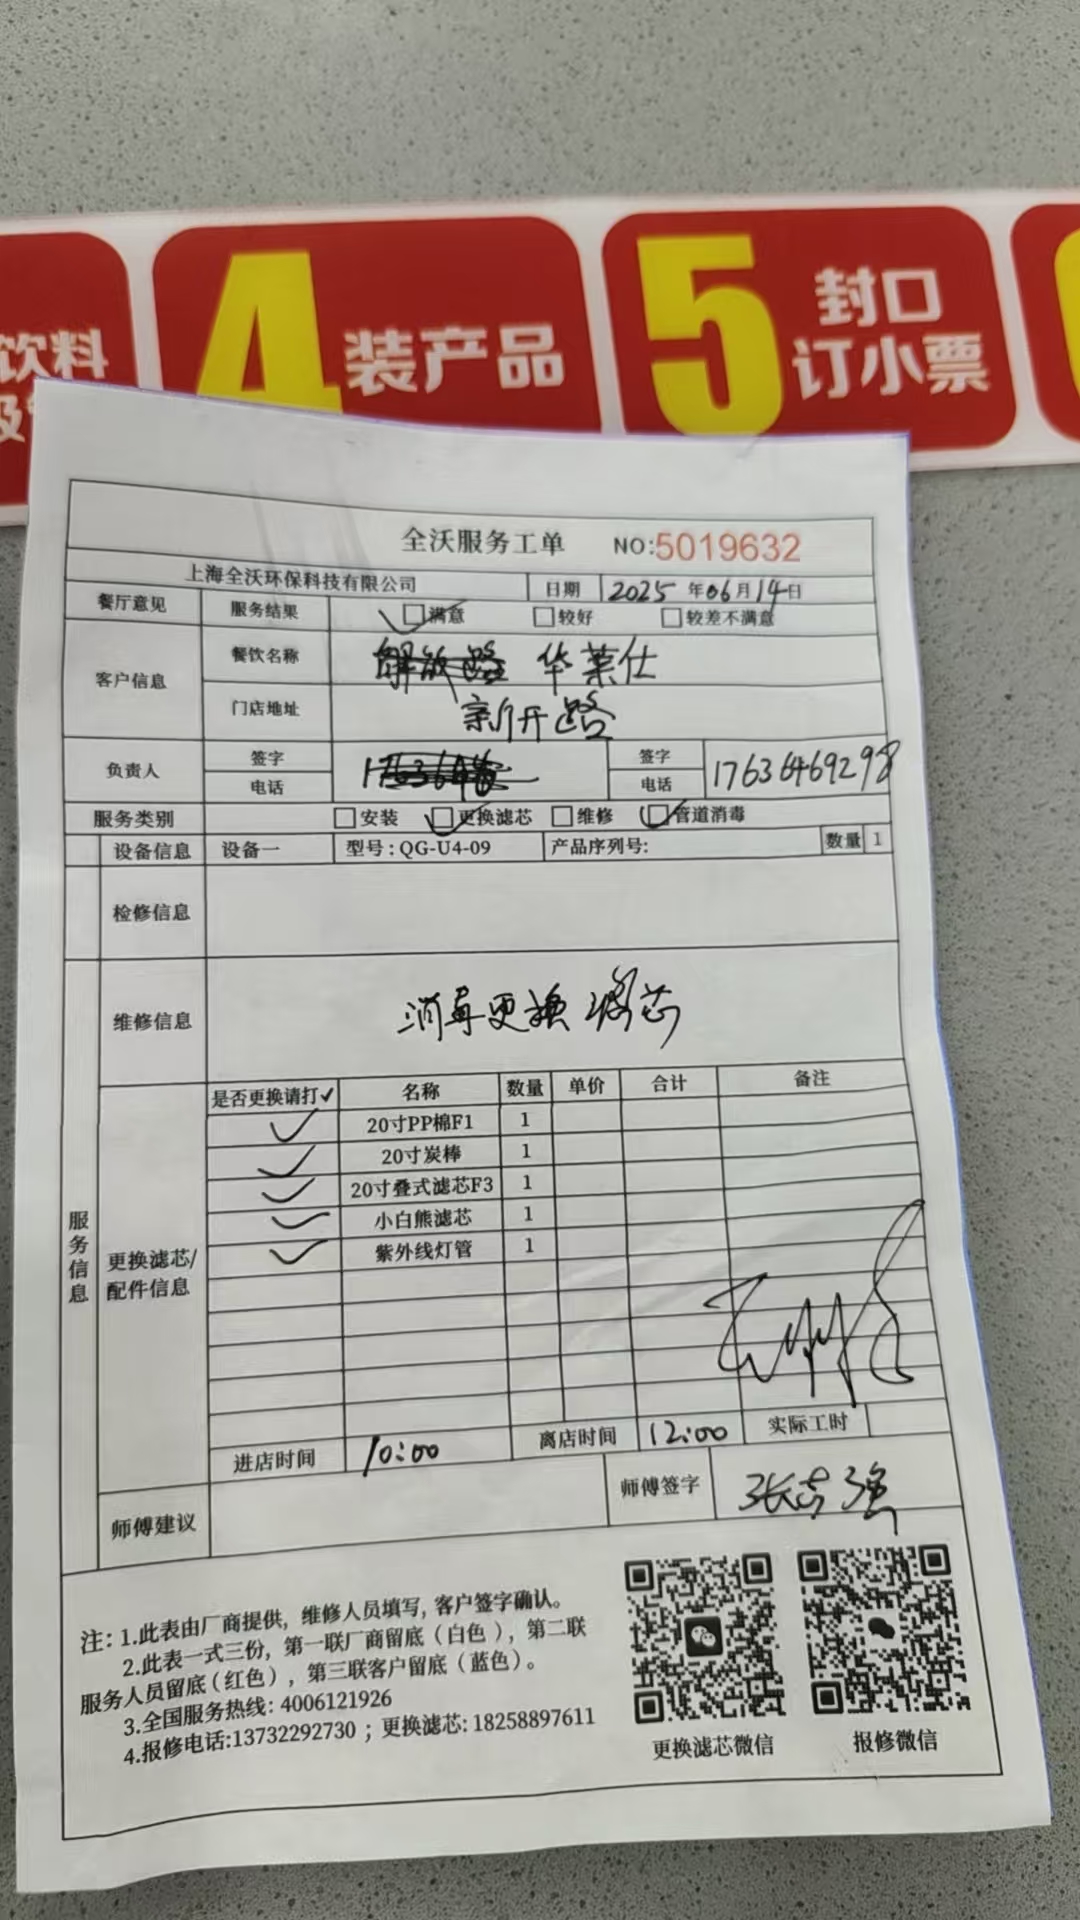 饮料
4 装产品
5 封口
订小票
全沃服务工单 NO:5019632
上海全沃环保科技有限公司 日期 2025 年 06 月 14 日
餐厅意见 服务结果 满意 较好 较差不满意
客户信息 餐饮名称 解放路 华莱仕
门店地址 新开路
负责人 签字 签字
电话 电话 17636469298
服务类别 安装 更换滤芯 维修 管道消毒
设备信息 设备一 型号:QG-U4-09 产品序列号: 数量 1
检修信息
维修信息 消毒更换滤芯
服务信息
更换滤芯/
配件信息
是否更换请打✓ 名称 数量 单价 合计 备注
✓ 20寸PP棉F1 1
✓ 20寸炭棒 1
✓ 20寸叠式滤芯F3 1
✓ 小白熊滤芯 1
✓ 紫外线灯管 1
进店时间 10:00 离店时间 12:00 实际工时
师傅建议 师傅签字 张志强
注: 1.此表由厂商提供, 维修人员填写, 客户签字确认。
2.此表一式三份, 第一联厂商留底(白色), 第二联
服务人员留底(红色), 第三联客户留底(蓝色)。
3.全国服务热线: 4006121926
4.报修电话:13732292730 ; 更换滤芯: 18258897611
更换滤芯微信 报修微信